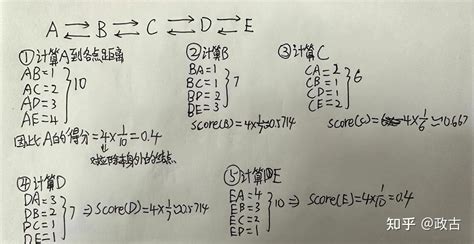 A ⇄ B ⇄ C ⇄ D ⇄ E
①计算A到各点距离
AB=1
AC=2
AD=3
AE=4
10
因此A的得分=4×1/10=0.4
对应除本身外的结点
②计算B
BA=1
BC=1
BD=2
DE=3
7
score(B)=4×1/7≈0.5714
③计算C
CA=2
CB=1
CD=1
CE=2
6
score(c)=4×1/6≈0.667
④计算D
DA=3
DB=2
DC=1
DE=1
7
⇒score(D)=4×1/7≈0.5714
⑤计算E
EA=4
EB=3
EC=2
ED=1
10
⇒score(E)=4×1/10=0.4
知乎 @政古